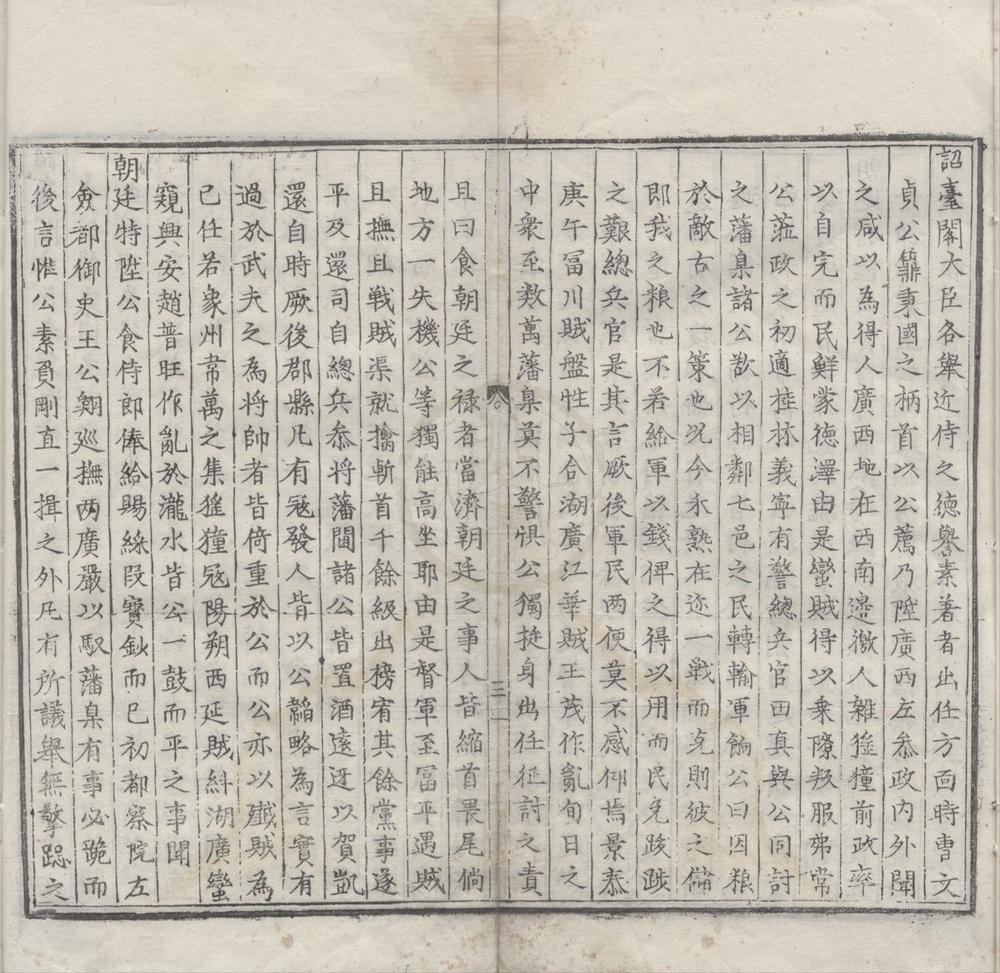 詔臺閣大臣各舉近侍之德譽素著者出任方面時曹文
貞公鼐秉國之柄首以公薦乃陞廣西左叅政內外聞
之咸以為得人廣西地在西南邉徼人雜猺獞前政率
以自完而民鮮蒙德澤由是蠻賊得以乗隙叛服弗常
公蒞政之初適桂林義寧有警總兵官田真與公同討
之藩臬諸公欲以相鄰七邑之民轉輸軍餉公曰因粮
於敵古之一策也况今禾熟在迩一戦而克則彼之儲
即我之粮也不若給軍以錢俾之得以用而民免跋踄
之艱總兵官是其言厥後軍民两便莫不感仰焉景泰
庚午冨川賊盤性子合湖廣江華賊王茂作亂旬日之
中衆至数萬藩臬莫不警惧公獨挺身出任征討之責
三
且曰食朝廷之禄者當濟朝廷之事人皆縮首畏尾倘
地方一失機公等獨能髙坐耶由是督軍至冨平遇賊
且撫且戦賊渠就擒斬首千餘級出榜宥其餘黨事遂
平及還司自總兵叅将藩閫諸公皆置酒遠迓以賀凱
還自時厥後郡縣凡有冦發人皆以公韜略為言實有
過於武夫之為將帥者皆倚重於公而公亦以㦿賊為
已任若象州常萬之集猺獞冦陽朔西延賊糾湖廣蠻
窺興安趙普旺作亂於瀧水皆公一鼓而平之事聞
朝廷特陞公食侍郎俸給賜綵段寳鈔而已初都察院左
僉都御史王公翺廵撫两廣嚴以馭藩臬有事必跪而
後言惟公素負剛直一揖之外凡有所議舉無擎跽之